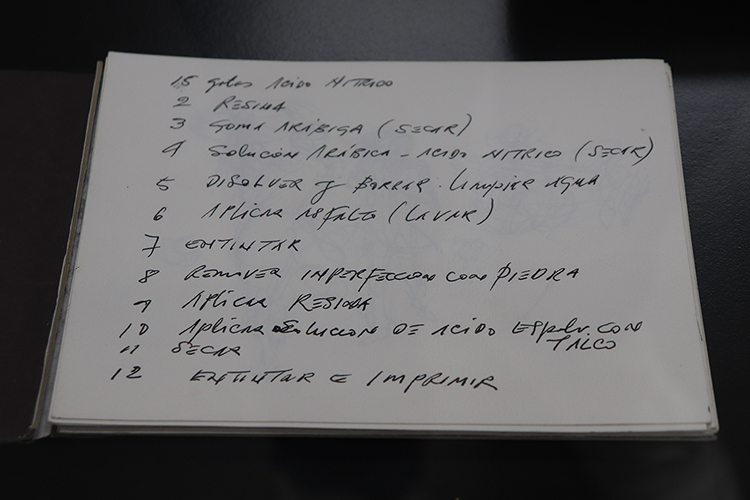 15 gotas ACIDO NITRICO
2 RESINA
3 GOMA ARÁBIGA (SECAR)
4 SOLUCION ARÁBICA - ACIDO NITRICO (SECAR)
5 DISOLVER y BORRAR. LIMPIAR AGUA
6 APLICAR ASFALTO (LAVAR)
7 ENTINTAR
8 REMOVER IMPERFECCION CON PIEDRA
9 APLICAR RESINA
10 APLICAR SOLUCION DE ACIDO ESPOLV. CON
TALCO
11 SECAR
12 ENTINTAR E IMPRIMIR